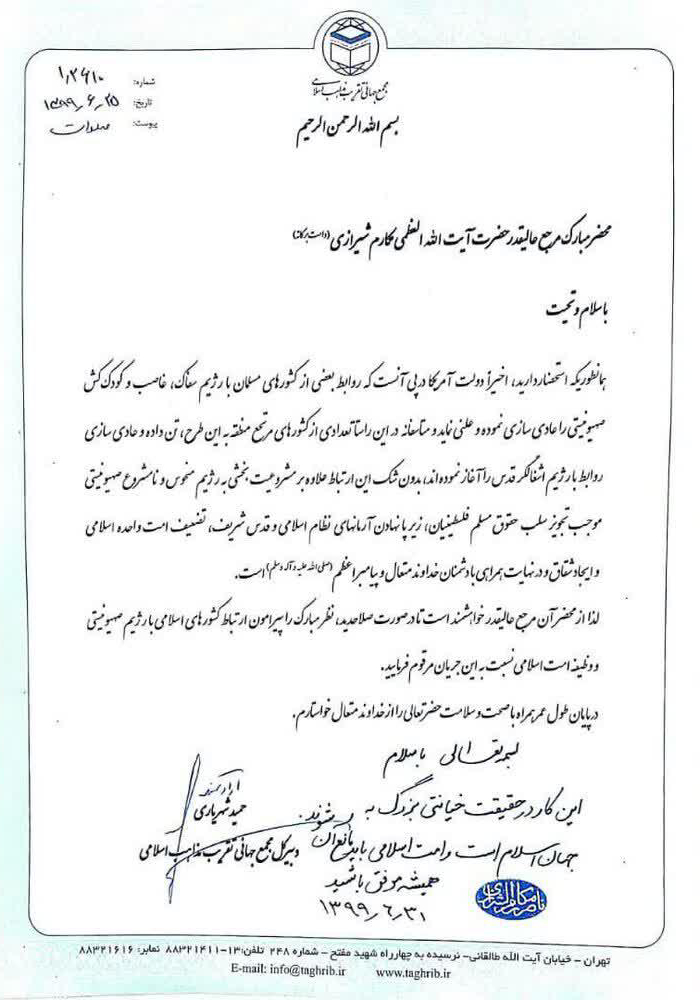 مجمع جهانی تقریب مذاهب اسلامی
شماره:
تاریخ: ۱۳۹۹٫۶٫۲۵
پیوست:
بسم الله الرحمن الرحیم
محضر مبارک مرجع عالیقدر حضرت آیت الله العظمی مکارم شیرازی (دامت برکاته)
با سلام و تحیت
همانطوریکه استحضار دارید، اخیراً دولت آمریکا در پی آنست که روابط بعضی از کشورهای مسلمان با رژیم سفاک، غاصب و کودک کش
صهیونیستی را عادی سازی نموده و علنی نماید و متاسفانه در این راستا تعدادی از کشورهای مرتجع منطقه به این طرح، تن داده و عادی سازی
روابط با رژیم اشغالگر قدس را آغاز نموده اند، بدون شک این ارتباط علاوه بر مشروعیت بخشی به رژیم منحوس و نامشروع صهیونیستی
موجب تجویز سلب حقوق مسلم فلسطینیان، زیر پا نهادن آرمانهای نظام اسلامی و قدس شریف، تضعیف امت واحده اسلامی
و ایجاد شقاق و در نهایت همراهی با دشمنان خداوند متعال و پیامبر اعظم (صلی الله علیه و آله وسلم) است.
لذا از محضر آن مرجع عالیقدر خواهشمند است تا در صورت صلاحدید، نظر مبارک را پیرامون ارتباط کشورهای اسلامی با رژیم صهیونیستی
و وظیفه امت اسلامی نسبت به این جریان مرقوم فرمایید.
در پایان طول عمر همراه با صحت و سلامت حضرتعالی را از خداوند متعال خواستارم.
بسمه تعالی با سلام
این کار در حقیقت خیانتی بزرگ به
جهان اسلام است و امت اسلامی باید مانع آن شوند.
همیشه موفق باشید
۱۳۹۹٫۶٫۳۱
ناصر مکارم شیرازی
ارادتمند
حمید شهریاری
دبیرکل مجمع جهانی تقریب مذاهب اسلامی
تهران - خیابان آیت الله طالقانی- نرسیده به چهارراه شهید مفتح - شماره ۲۴۸ تلفن:۱۳-۸۸۳۲۱۴۱۱ نمابر: ۸۸۳۲۱۶۱۶
E-mail: info@taghrib.ir www.taghrib.ir